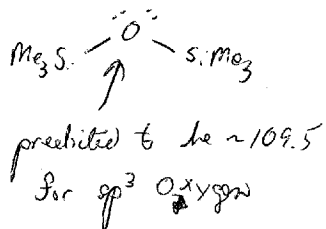 O
Me3Si SiMe3
predicted to be ~109.5
for sp³ Oxygen